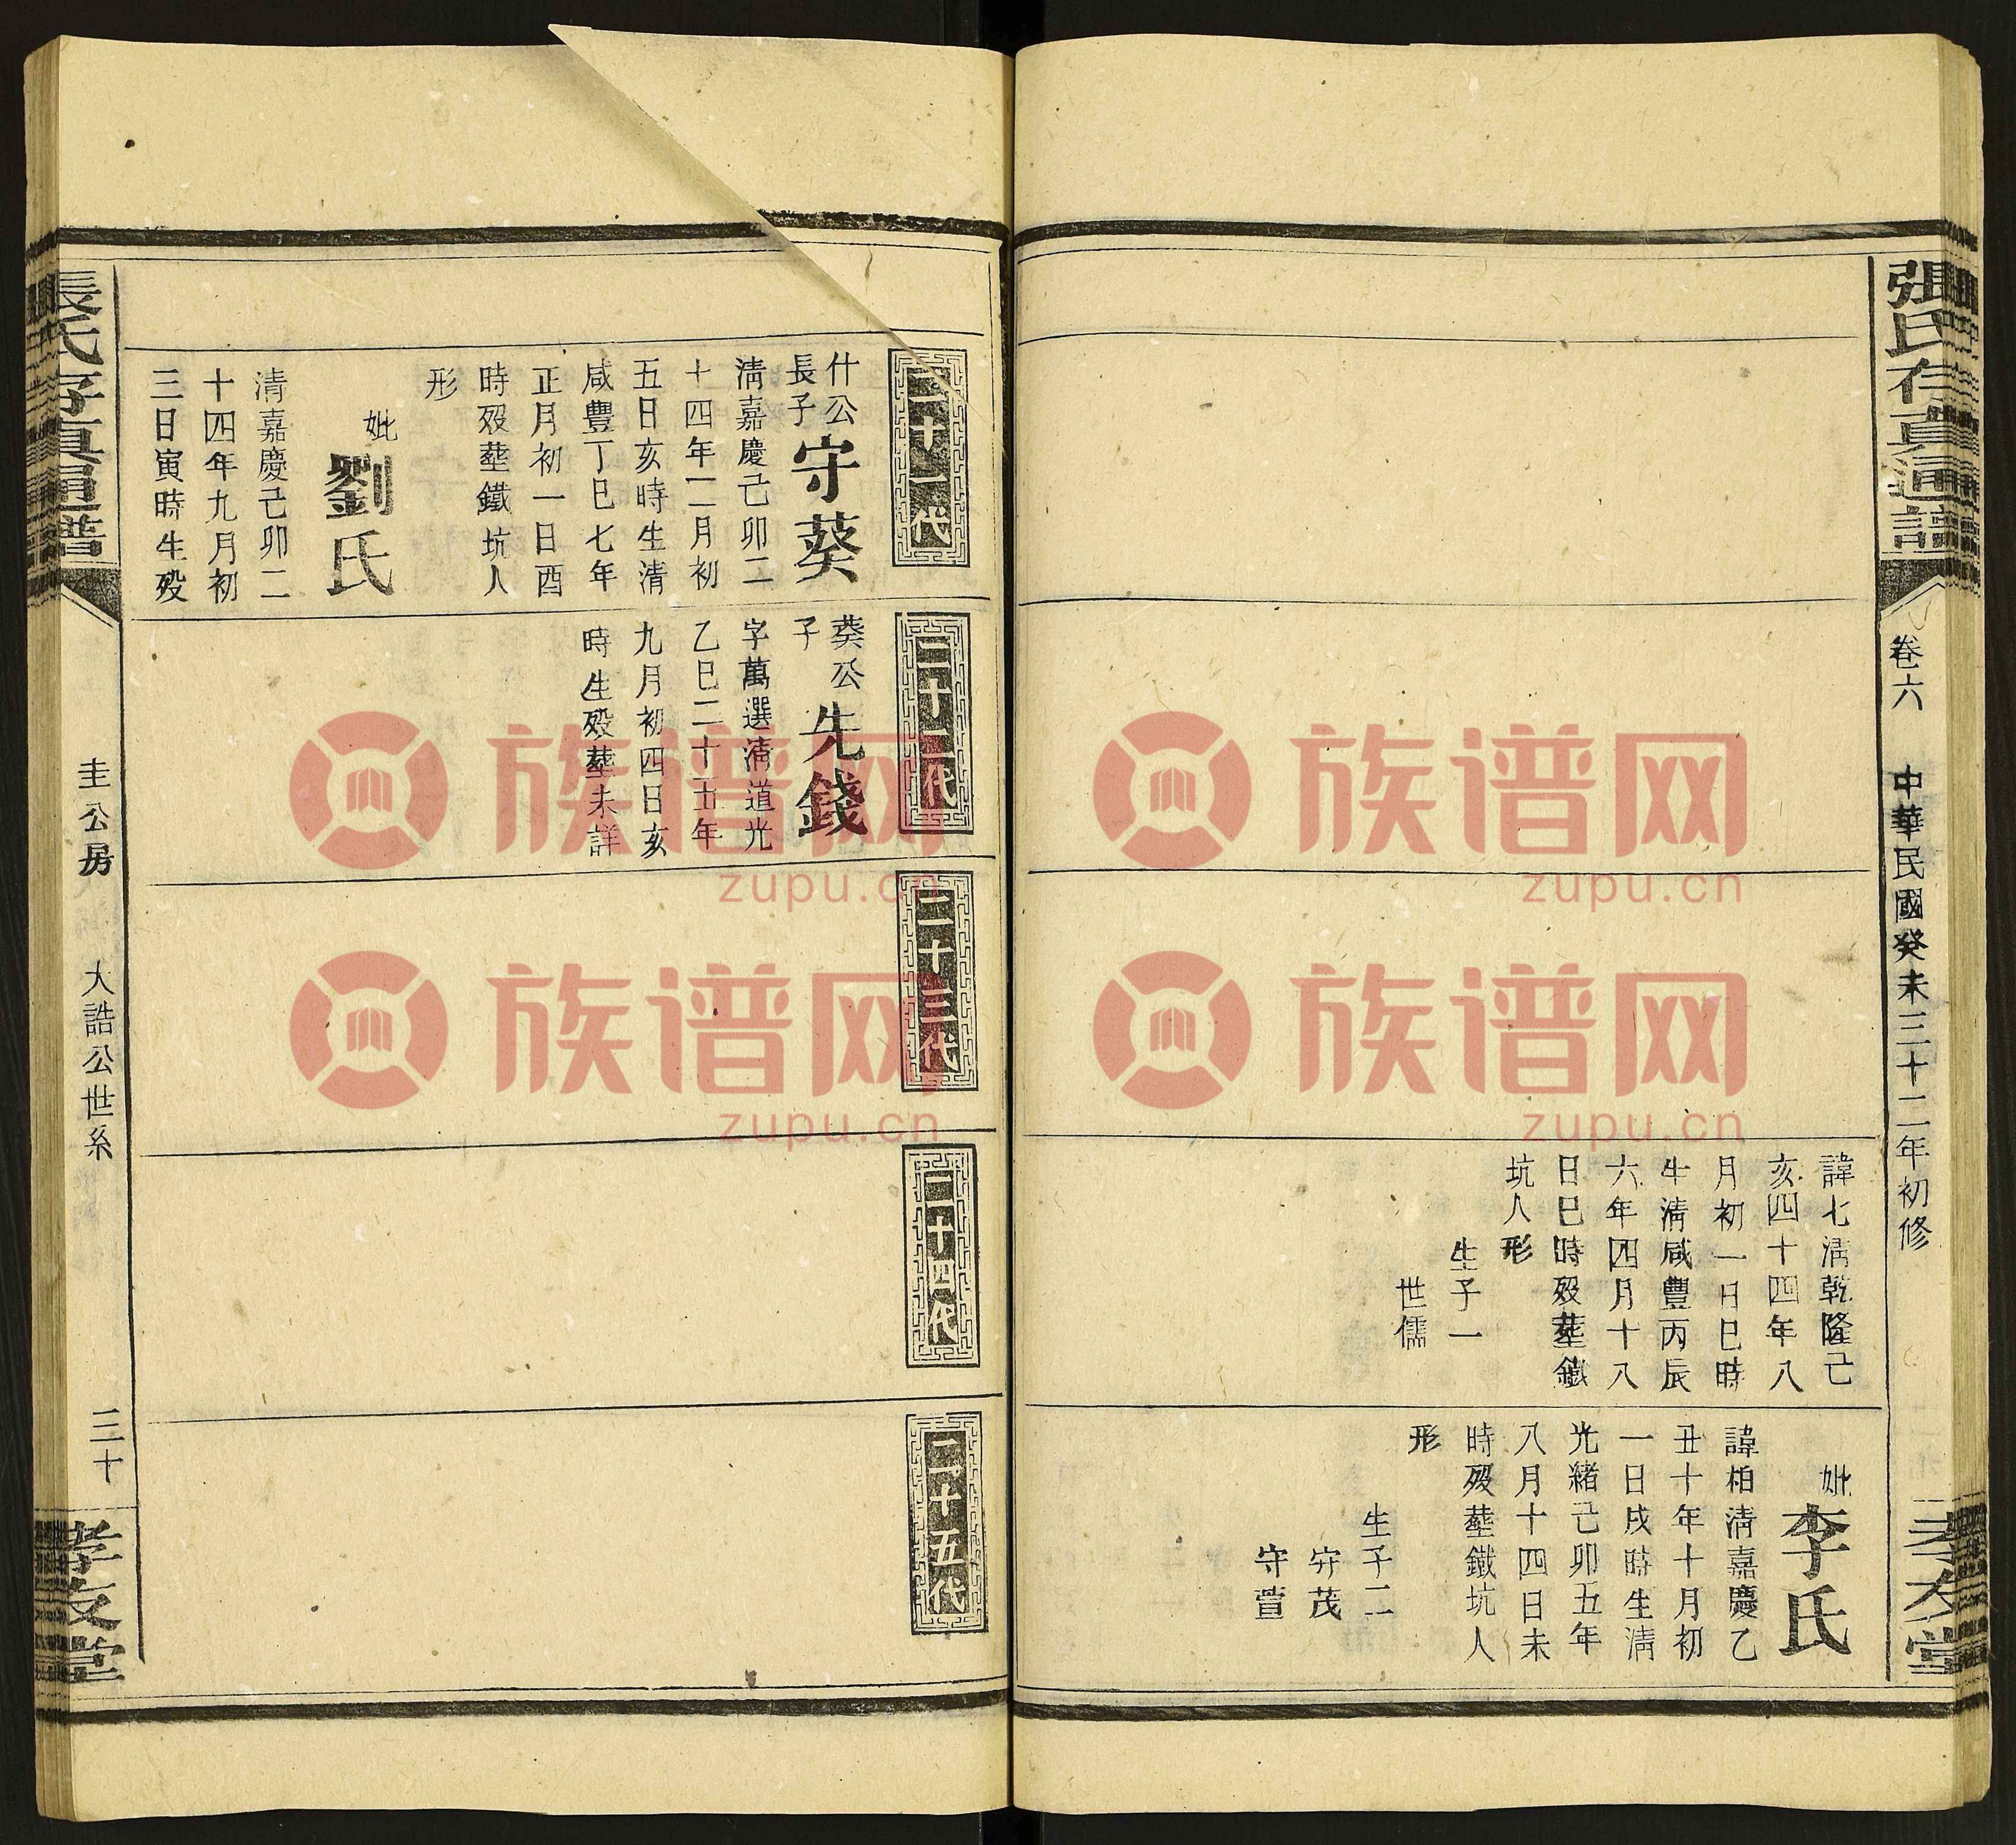 張氏存真通譜
卷六
中華民國癸未三十二年初修
孝友堂
諱七清乾隆己
亥四十四年八
月初一日巳時
生清咸豐丙辰
六年四月十八
日巳時歿塟鐵
坑人形
生子一
世儒
妣
李氏
諱柏清嘉慶乙
丑十年十月初
一日戌時生清
光緒己卯五年
八月十四日未
時歿塟鐵坑人
形
生子二
守茂
守萱
二十一代
什公
長子
守葵
清嘉慶己卯二
十四年二月初
五日亥時生清
咸豐丁巳七年
正月初一日酉
時歿塟鐵坑人
形
妣
劉氏
清嘉慶己卯二
十四年九月初
三日寅時生歿
二十二代
葵公
子
先錢
字萬選清道光
乙巳二十五年
九月初四日亥
時生歿塟未詳
二十三代
二十四代
二十五代
張氏存真通譜
圭公房
大誥公世系
三十
孝友堂
族谱网
zupu.cn
族谱网
zupu.cn
族谱网
zupu.cn
族谱网
zupu.cn